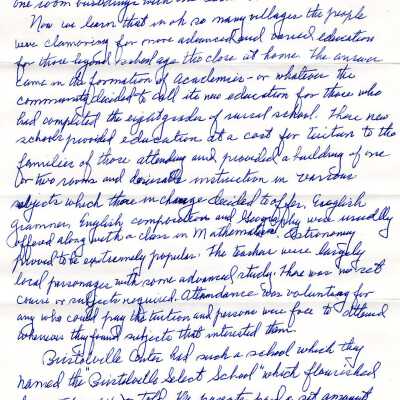 one room buildings with one
Now we learn that in oh so many villages the people
were clamoring for more advanced and varied education
for those beyond school age to close at home. The answer
came in the formation of Academies - or whatever the
community decided to call its new education for those who
had completed the eight grades of rural school. These new
schools provided education at a cost for tuition to the
families of those attending and provided a building of one
or two rooms and desirable instruction in various
subjects which those in charge decided to offer. English
grammar, English composition and Geography were usually
offered along with a class in Mathematics. Astronomy
proved to be extremely popular. The teachers were largely
local personages with some advanced study. There was no set
course or subjects required. Attendance was voluntary for
any who could pay the tuition and persons were free to attend
whenever they found subjects that interested them.
Bristolville Center had such a school which they
named the "Bristolville Select School" which flourished
told the parents paid a set amount